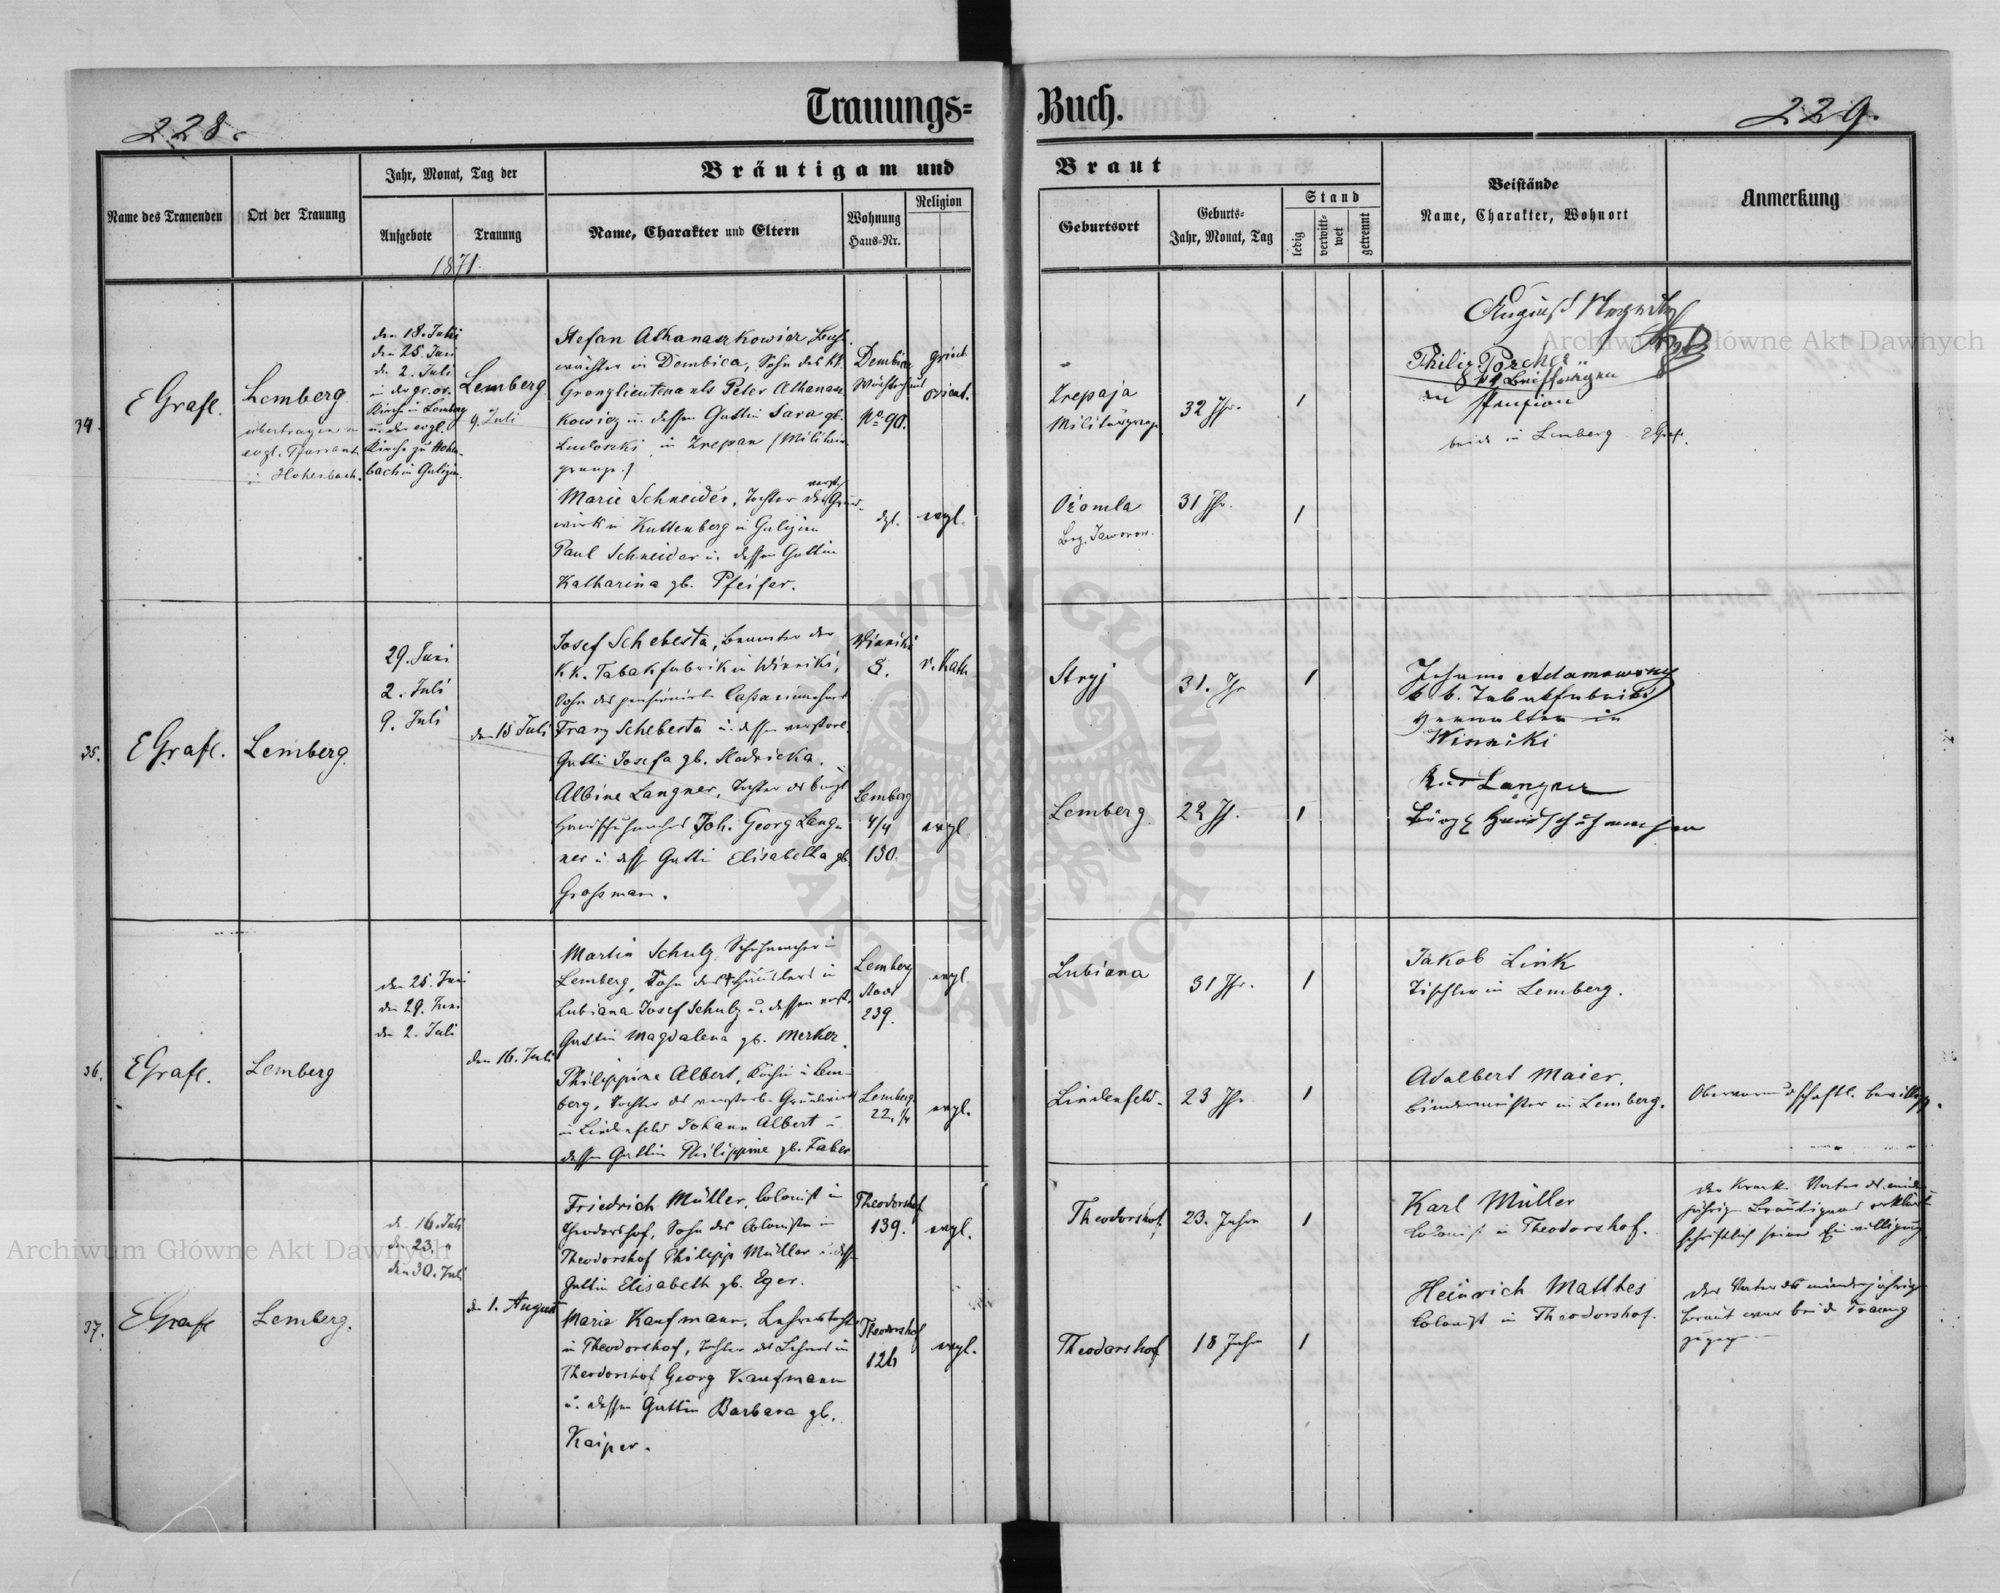 Trauungs= Buch.
228.
229.
Name des Trauenden
Ort der Trauung
Jahr, Monat, Tag der
Aufgebote
Trauung
1871.
Bräutigam und Braut
Name, Charakter und Eltern
Wohnung
Haus=Nr.
Religion
Geburtsort
Geburts=
Jahr, Monat, Tag
Stand
ledig
verwitt-
wet
getrennt
Beistände
Name, Charakter, Wohnort
Anmerkung
34.
EGrafl.
Lemberg
übertragen
evgl. Pfarramt
in Hohenbach.
den 18. Juni
den 25. Juni
den 2. Juli
in der gr. or.
Kirche in Lemberg
u. der evgl.
Kirche zu Hohen-
bach in Galizien
Lemberg
9. Juli
Stefan Athanaszkowicz,
wächter in Dembica, Sohn des kk.
Grenzlieutenants Peter Athanasz
kowicz u. dessen Gattin Sara gb.
in Zrepan (Militär
grenze.)
Dembica
Wächterhaus
No 90.
griech.
orient.
Zrepaja
Militärgrenze
32 Jhr.
1
August
Philip Porcher
Pension
beide in Lemberg. EGrafl.
verst.
Marie Schneider, Tochter des Grund-
wirth in Kuttenberg in Galizien
Paul Schneider u. dessen Gattin
Katharina gb. Pfeifer.
dgl.
evgl.
Ożomla
Bez. Jaworow.
31 Jhr.
1
35.
EGrafl.
Lemberg.
29. Juni
2. Juli
9. Juli
den 15 Juli
Josef Schebesta, Beamter der
k.k. Tabakfabrik in Winniki,
Sohn des pensionirten Cassaeinnehmers
Franz Schebesta u. dessen verstorb.
Gattin Josefa gb. Hodricka.
Winniki
8.
r. Kath
Stryj
31. Jhr
1
Johann Adamowsky
k. k. Tabakfabriks
Verwalter in
Winniki
Albine Langner, Tochter des bürgl
Handschuhmachers Joh. Georg Lang-
ner u. dess. Gattin Elisabetha gb.
Großman.
Lemberg
4/4
130.
evgl
Lemberg.
22 Jh.
1
Rud Langner
Bürgl Handschuhmacher
36.
EGrafl.
Lemberg
den 25. Juni
den 29. Juni
den 2. Juli
den 16. Juli
Martin Schulz, Schuhmacher in
Lemberg, Sohn des Häuslers in
Lubiana Josef Schulz u. dessen verst.
Gattin Magdalena gb. Merker.
Lemberg
Stadt
239.
evgl.
Lubiana
31 Jhr.
1
Jakob Link
Tischler in Lemberg.
Philippine Albert, Köchin in Lem-
berg, Tochter des verstorb. Grundwirth
in Lindenfeld Johann Albert u.
dessen Gattin Philippine gb. Faber
Lemberg
22, 1/4
evgl.
Lindenfeld.
23 Jhr
1
Adalbert Maier.
Bindermeister in Lemberg.
Obervormundschaftl. Bewilligg.
37.
EGrafl
Lemberg.
den 16. Juli
den 23. "
den 30. Juli
den 1. August
Friedrich Müller, Colonist in
Theodorshof, Sohn des Colonisten in
Theodorshof Philipp Müller u. dess.
Gattin Elisabeth gb. Eger.
Theodorshof
139.
evgl.
Theodorshof.
23. Jahre
1
Karl Müller
Colonist in Theodorshof.
der Vater des minder-
jährigen Bräutigams erklärte
schriftlich seine Einwilligung
Maria Kaufmann, Lehrerstochter
in Theodorshof, Tochter des Lehrers in
Theodorshof Georg Kaufmann
u. dessen Gattin Barbara gb.
Kaiper.
Theodorshof
126
evgl.
Theodorshof
18 Jahre
1
Heinrich Matthes
Colonist in Theodorshof.
Der Vater der minderjährigen
Braut war bei der Trauung
zugegen
Archiwum Główne Akt Dawnych
Archiwum Główne Akt Dawnych
ARCHIWUM GŁÓWNE AKT DAWNYCH